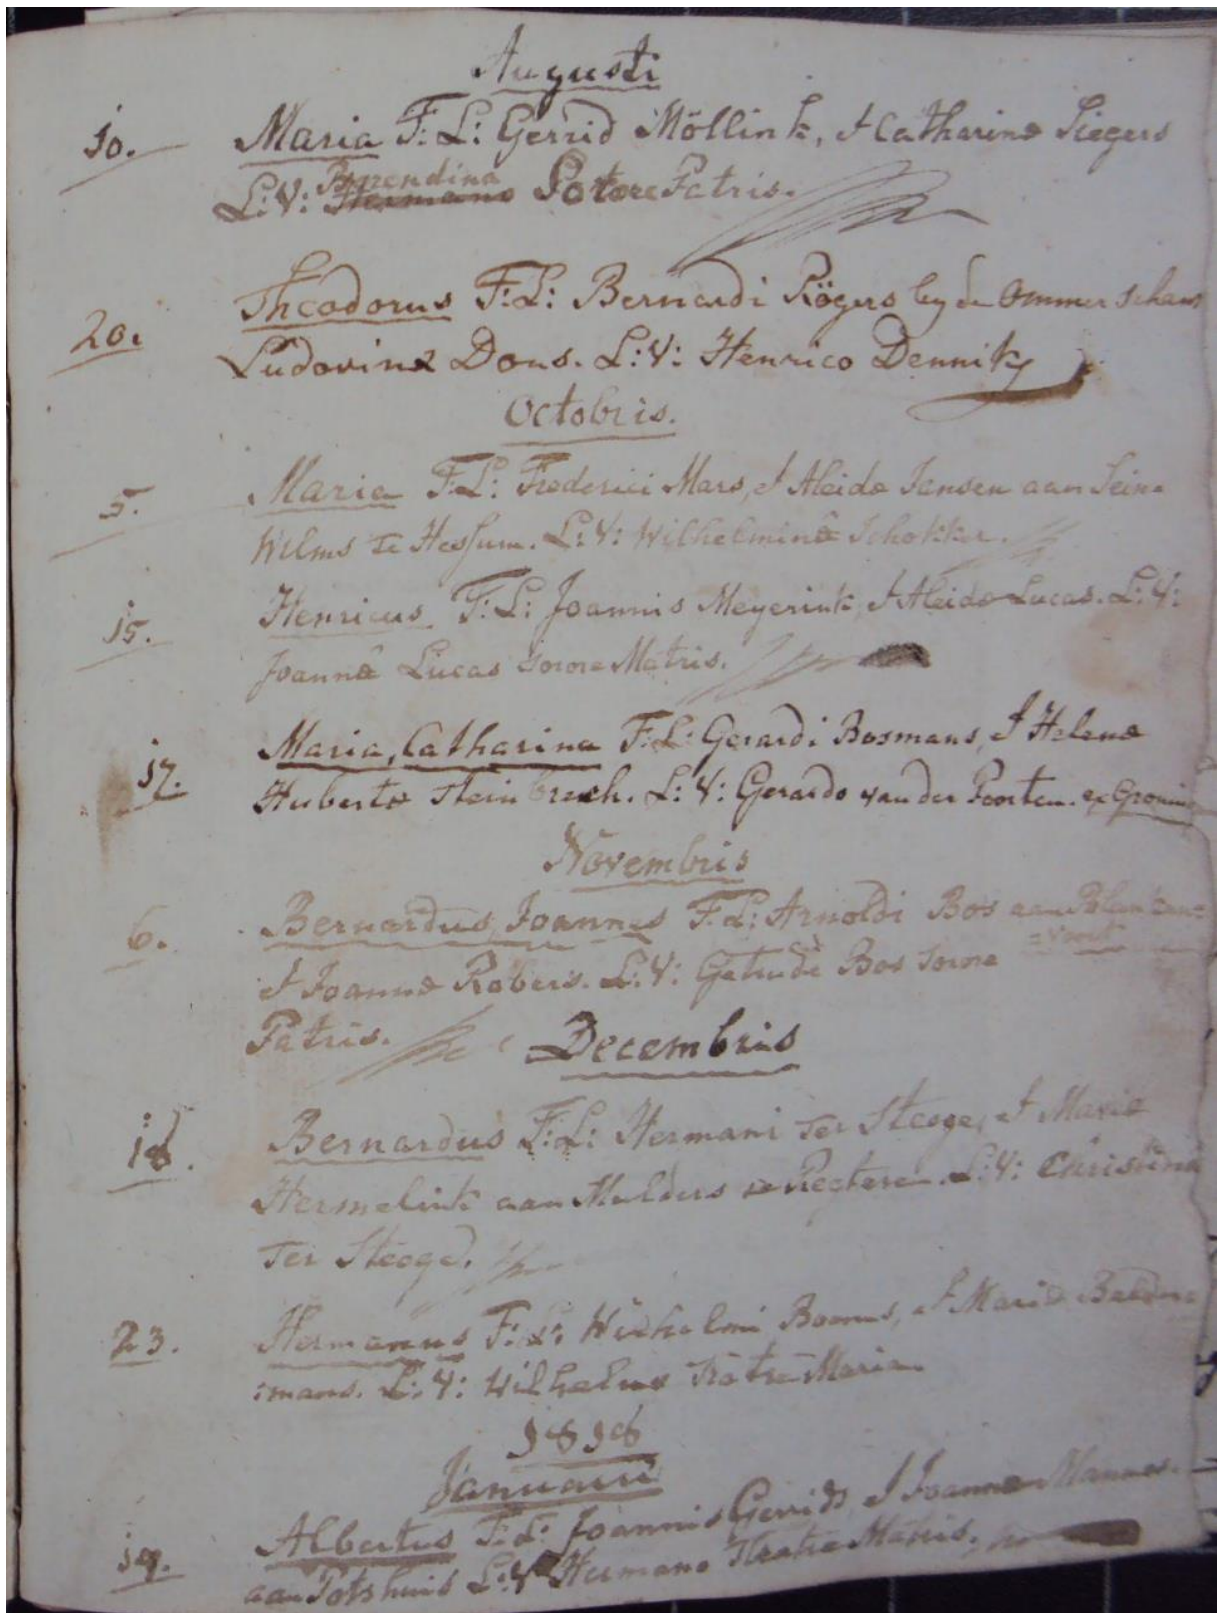 Augusti
10. Maria F: L: Gerrid Möllink, & Catharinæ Siegers
Berendina
L: V: Hermano Sorore Patris.
20. Theodorus F: L: Bernardi Rögers by de Ommer schans
Ludovinæ Dons. L: V: Henrico Dennik
Octobris.
5. Maria F: L: Frederici Mars, & Aleidæ Jansen aan Sein=
Wilms te Hessum. L: V: Wilhelminâ Schokker.
15. Henricus F: L: Joannis Meyerink, & Aleidæ Lucas. L: V:
Joannâ Lucas sorore Matris.
17. Maria, Catharina F: L: Gerardi Bosmans, & Helenæ
Hubertæ Steinbrech. L: V: Gerardo van der Ponten. ex Groning
Novembris
6. Bernardus, Joannes F: L: Arnoldi Bos aan Blanken=
=voort
& Joannæ Robers. L: V: Getrude Bos sorore
Patris.
Decembris
18. Bernardus F: L: Hermani Ter Steege, & Mariæ
Hermelink aan Mulders te Rechteren. L: V: Christina
Ter Steege.
23. Hermanus F: L: Wilhelmi & Mariæ
:mans. L: V: Wilhelmo
1818
Januarii
19. Albertus F: L: Joannis Gerrids, & Joannæ Mannes.
aan Potshuis L: V: Hermano fratre Matris.